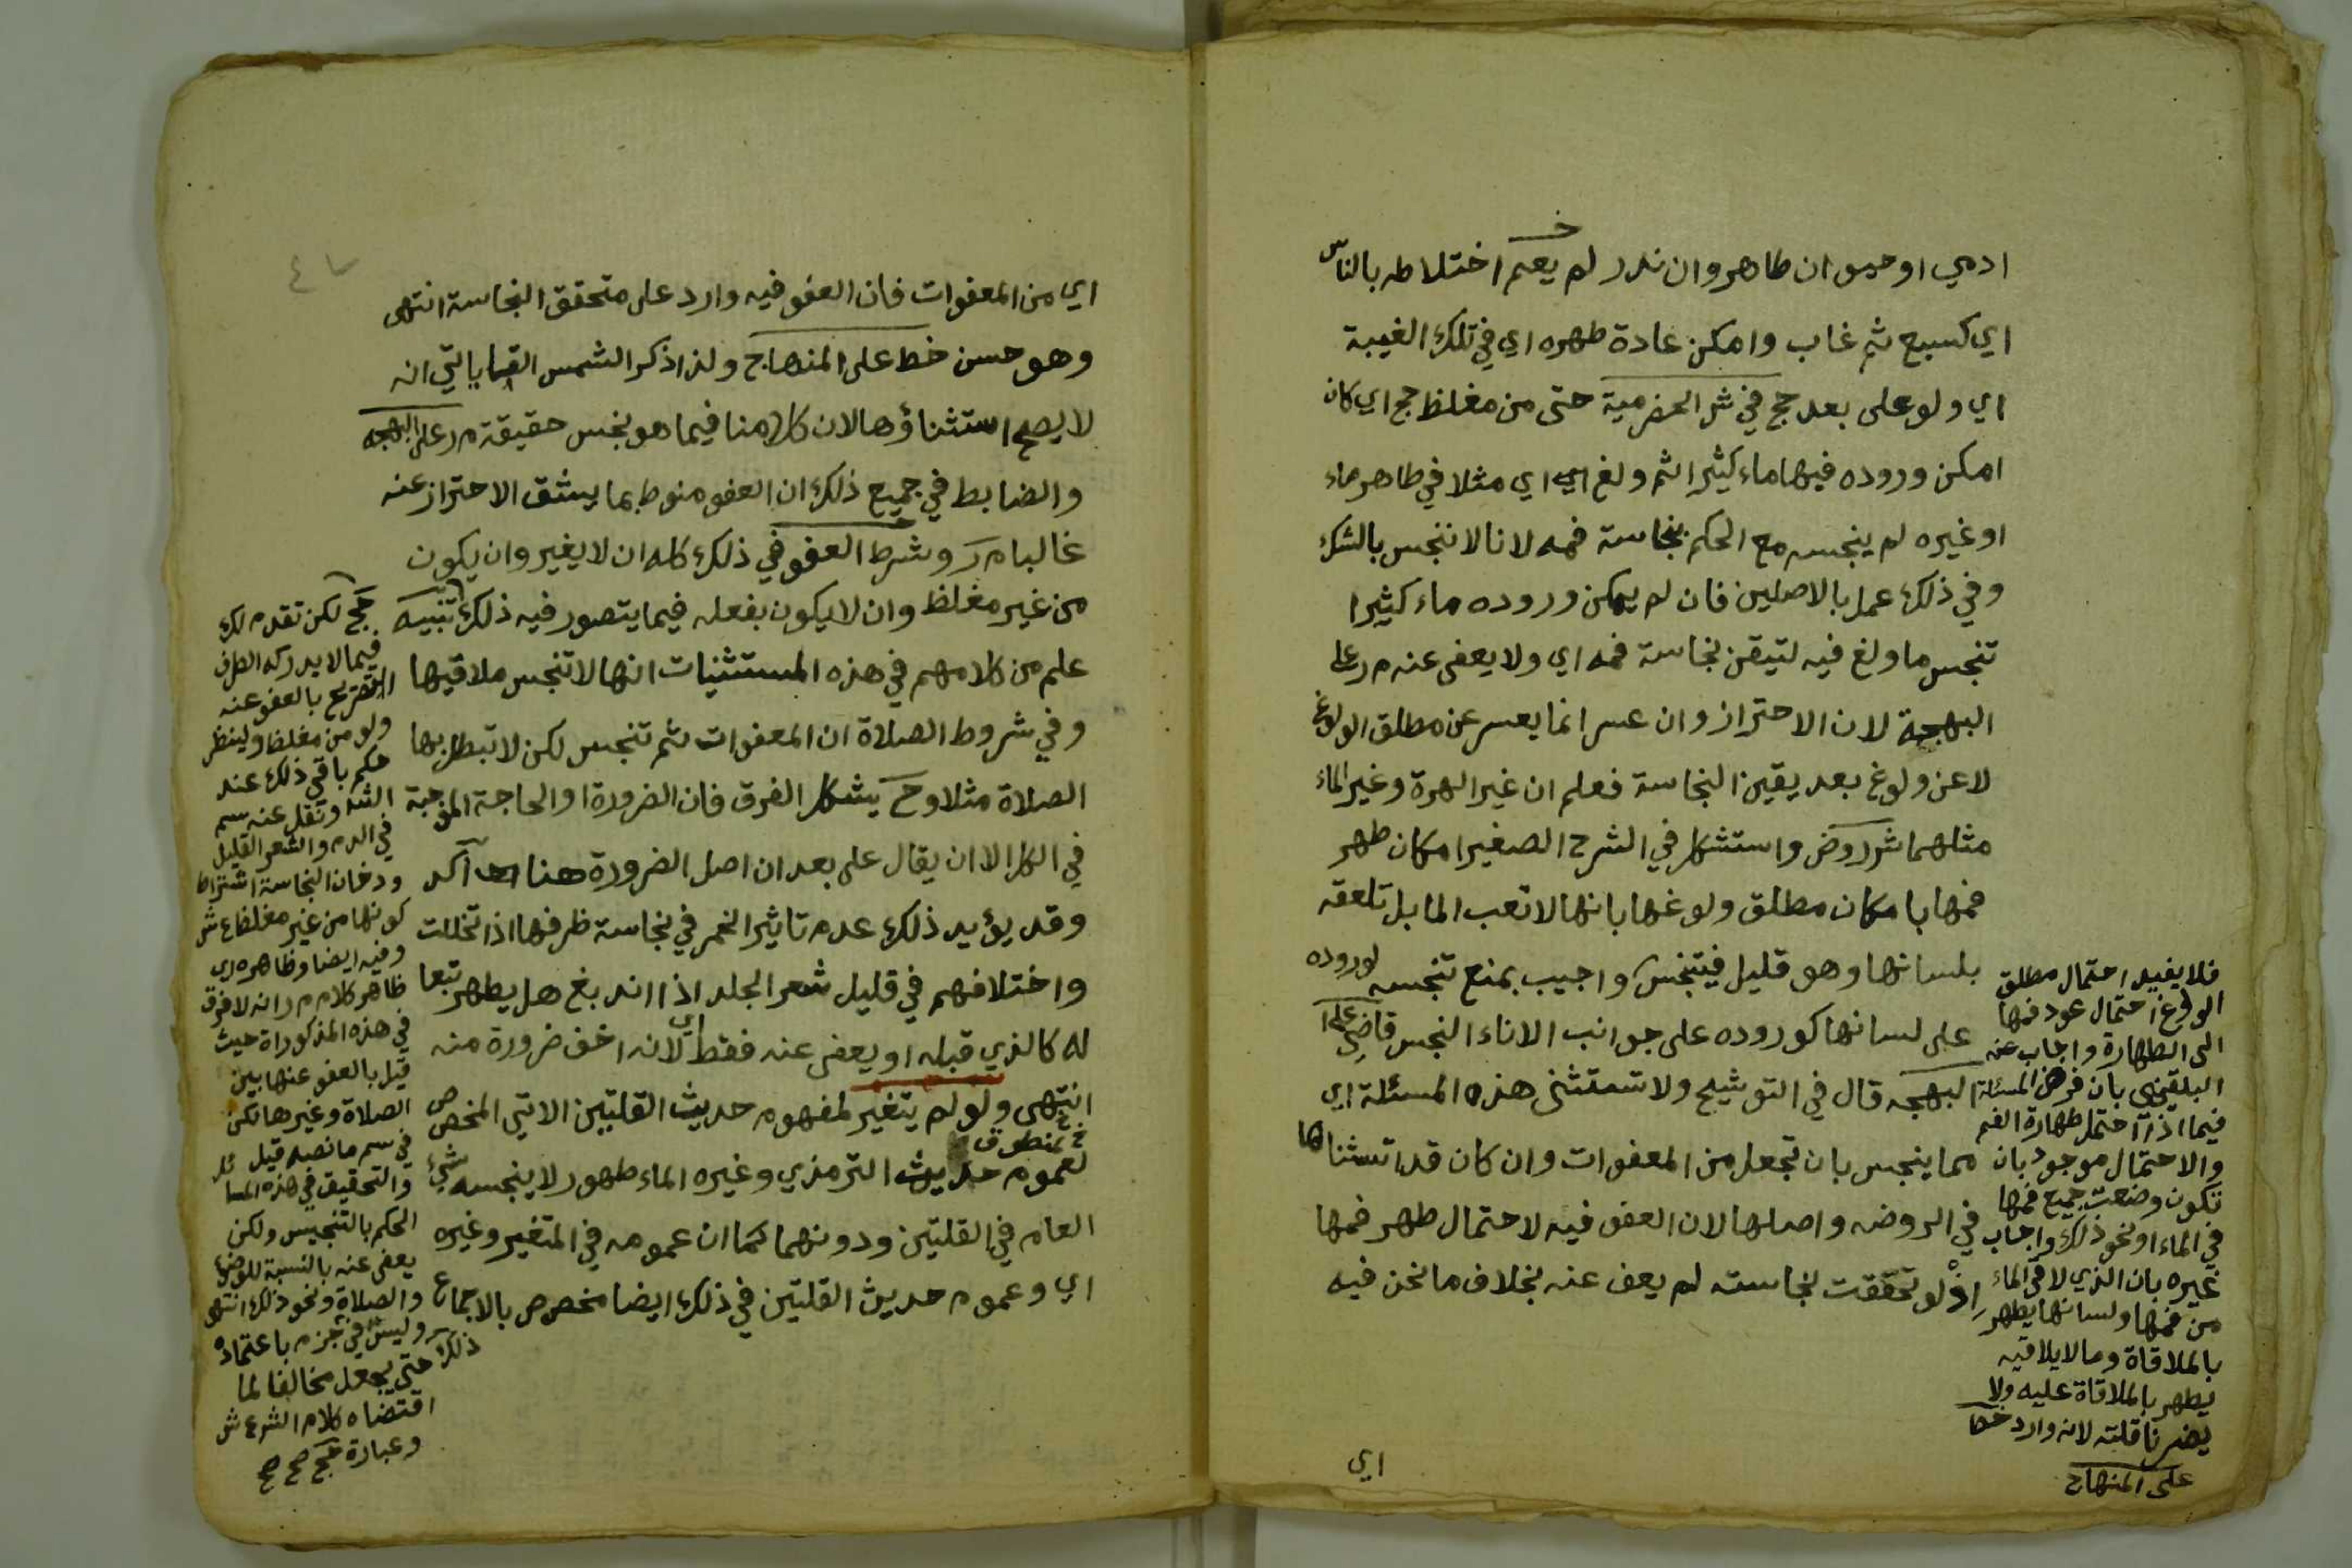 ادمي او حيوان طاهر وان ندر لم يعم اختلاطه بالناس
خ
اي كسبع ثم غاب وامكن عادة طهره اي في تلك الغيبة
اي ولو على بعد حج في شر الحضرمية حتى من مغلظ حج اي كان
امكن وروده فيها ماء كثيرا ثم ولغ اي اي مثلا في طاهر ماء
او غيره لم ينجسه مع الحكم بنجاسة فمه لانا لا ننجس بالشك
وفي ذلك عمل بالاصلين فان لم يمكن وروده ماء كثيرا
تنجس ما ولغ فيه لتيقن نجاسة فمه اي ولا يعفى عنه م ر على
البهجة لان الاحتراز وان عسر انما يعسر عن مطلق الولوغ
لا عن ولوغ بعد يقين النجاسة فعلم ان غير الهرة وغير الماء
مثلهما شر روض واستشكل في الشرح الصغير امكان طهر
فمها بامكان مطلق ولوغها بانها لا تعب الما بل تلعقه
بلسانها وهو قليل فيتنجس واجيب بمنع تنجسه لوروده
على لسانها كوروده على جوانب الاناء النجس قاضي على
البهجه قال في التوشيح ولا تستثنى هذه المسئلة اي
مما ينجس بان تجعل من المعفوات وان كان قد استثناها
في الروضه واصلها لان العفو فيه لاحتمال طهر فمها
اذ لو تحققت نجاسته لم يعف عنه بخلاف ما نحن فيه
اي
فلا يفيد احتمال مطلق
الولوغ احتمال عود فمها
الى الطهارة واجاب عنه
البلقيني بان فرض المسئلة
فيما اذا احتمل طهارة الفم
والاحتمال موجود بان
تكون وضعت جميع فمها
في الماء او نحو ذلك واجاب
غيره بان الذي لاقى الماء
من فمها ولسانها يطهر
بالملاقاة وما لا يلاقيه
يطهر بالملاقاة عليه ولا
يضرنا قلته لانه وارد خط
على المنهاج
٤٧
اي من المعفوات فان العفو فيه وارد على متحقق النجاسة انتهى
وهو حسن خط على المنهاج ولذا ذكر الشمس القاياتي انه
لا يصح استثناؤها لان كلامنا فيما هو نجس حقيقة م ر على البهجه
والضابط في جميع ذلك ان العفو منوط بما يشق الاحتراز عنه
غالبا م ر وشرط العفو في ذلك كله ان لا يغير وان يكون
من غير مغلظ وان لا يكون بفعله فيما يتصور فيه ذلك تنبيه
علم من كلامهم في هذه المستثنيات انها لا تنجس ملاقيها
وفي شروط الصلاة ان المعفوات ثم تنجس لكن لا تبطل بها
الصلاة مثلا وح يشكل الفرق فان الضرورة او الحاجة الموجبة
في الكل الا ان يقال على بعد ان اصل الضرورة هنا آكد
وقد يؤيد ذلك عدم تاثير الخمر في نجاسة ظرفها اذا تخللت
واختلافهم في قليل شعر الجلد اذا اندبغ هل يطهر تبعا
له كالذي قبله او يعفى عنه فقط اي لانه اخف ضرورة منه
انتهى ولو لم يتغير لمفهوم حديث القلتين الاتي المخصص
خ لمنطوق
لعموم حديث الترمذي وغيره الماء طهور لا ينجسه شيء
العام في القلتين ودونهما كما ان عمومه في المتغير وغيره
اي وعموم حديث القلتين في ذلك ايضا مخصص بالاجماع
حج لكن تقدم لك
فيما لا يدركه الطرف
التصريح بالعفو عنه
ولو من مغلظ ولينظر
حكم باقي ذلك عند
الشر ونقل عنه سم
في الدم والشعر القليل
ودخان النجاسة اشتراط
كونها من غير مغلظ ع ش
وفيه ايضا وظاهره اي
ظاهر كلام م ر انه لا فرق
في هذه المذكوراة حيث
قيل بالعفو عنها بين
الصلاة وغيرها لكن
في سم ما نصه قيل
والتحقيق في هذه المسائل
الحكم بالتنجيس ولكن
يعفى عنه بالنسبة للوضوء
والصلاة ونحو ذلك انتهى
وليس في جزم باعتماد
ذلك حتى يجعل مخالفا لما
اقتضاه كلام الشر ع ش
وعبارة حج صح صح